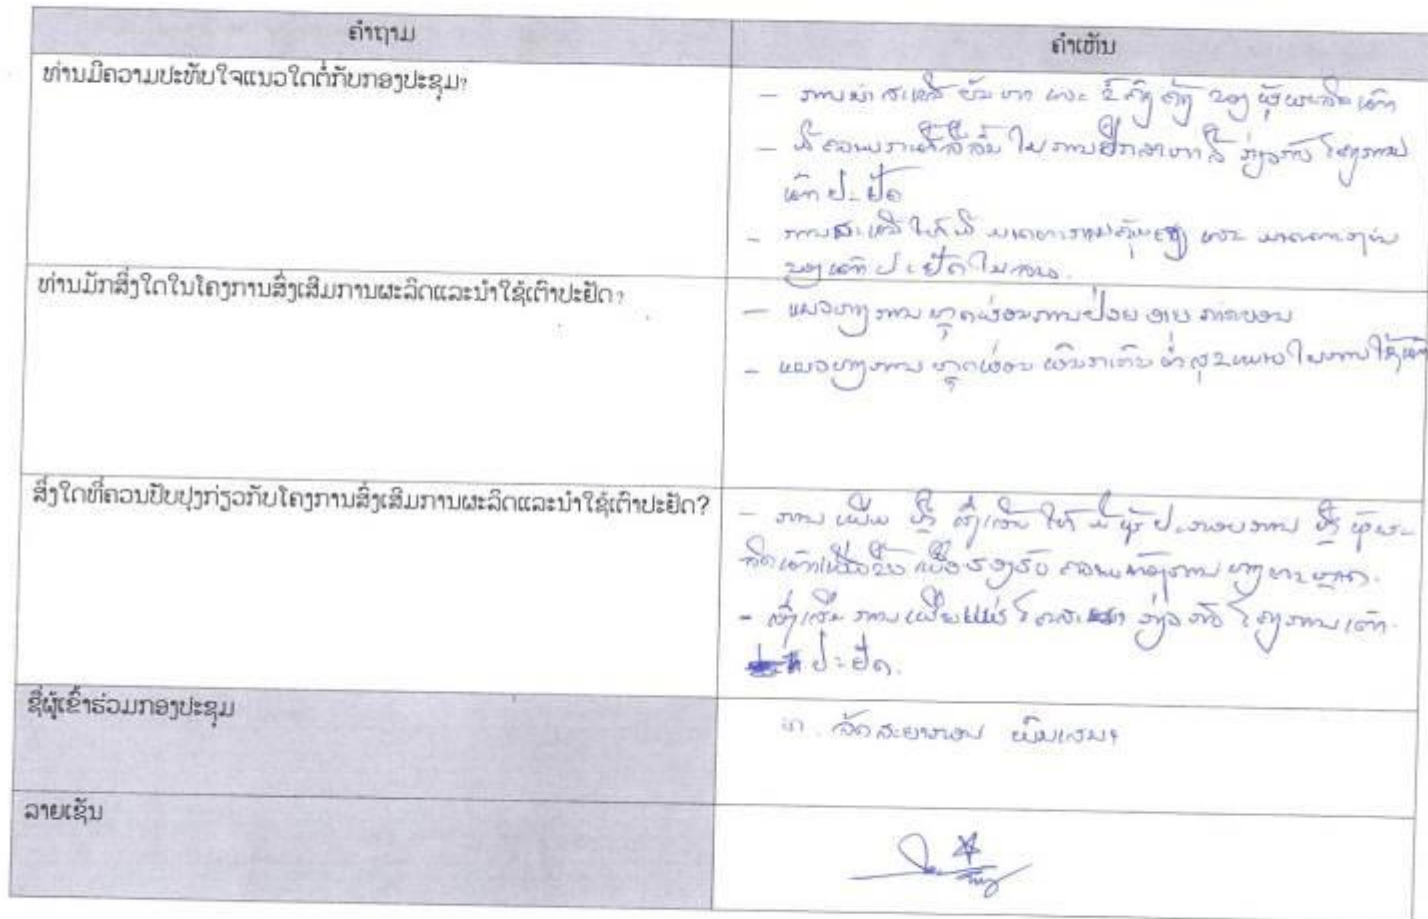 ຄຳຖາມ
ຄຳເຫັນ
ທ່ານມີຄວາມປະທັບໃຈແນວໃດຕໍ່ກັບກອງປະຊຸມ?
- ການນຳສະເໜີ ບັນຫາ ແລະ ຂໍ້ຄົງຄ້າງ ຂອງ ຜູ້ຜະລິດເຕົາ
- ມີຄວາມ ໃນການປຶກສາຫາລື ກ່ຽວກັບ ໂຄງການ
ເຕົາປະຢັດ
- ການສະເໜີ ໃຫ້ມີ ແລະ
ຂອງເຕົາປະຢັດ
ທ່ານມັກສິ່ງໃດໃນໂຄງການສົ່ງເສີມການຜະລິດແລະນຳໃຊ້ເຕົາປະຢັດ?
- ແນວທາງການ ຫຼຸດຜ່ອນການປ່ອຍ ອາຍ ກາກບອນ
- ແນວທາງການ ຫຼຸດຜ່ອນ ຜົນກະທົບ ຕໍ່ສຸຂະພາບ ໃນການໃຊ້ເຕົາ
ສິ່ງໃດທີ່ຄວນປັບປຸງກ່ຽວກັບໂຄງການສົ່ງເສີມການຜະລິດແລະນຳໃຊ້ເຕົາປະຢັດ?
- ການ ເພີ່ມ ຫຼື ສົ່ງເສີມ ໃຫ້ ມີ ຜູ້ປະກອບການ ຫຼື ຜູ້ຜະ-
ລິດເຕົາເພີ່ມຂຶ້ນ ເພື່ອຮອງຮັບ ຄວາມຕ້ອງການ ທາງ
- ສົ່ງເສີມ ການເຜີຍແຜ່ ໂຄສະນາ ກ່ຽວກັບ ໂຄງການເຕົາ
ປະຢັດ.
ຊື່ຜູ້ເຂົ້າຮ່ວມກອງປະຊຸມ
ລາຍເຊັນ